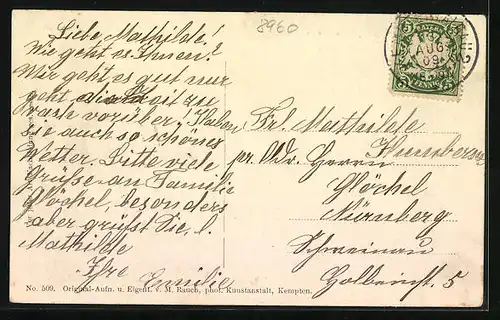 8960
Liebe Mathilde!
Wie geht es Ihnen?
Mir geht es gut nur
geht die Zeit zu
rasch vorüber! Haben
sie auch so schönes
Wetter. Bitte viele
Grüße an Familie
Glöchel, besonders
aber grüßt Sie, l.
Mathilde
Ihre Emilie
BAYERN
5 5
AUG
09
Frl. Mathilde
pr. Adr. Herrn
Glöchel
Nürnberg
Schweinau
Holbeinst. 5
No. 509. Original-Aufn. u. Eigent. v. M. Rauch, phot. Kunstanstalt, Kempten.